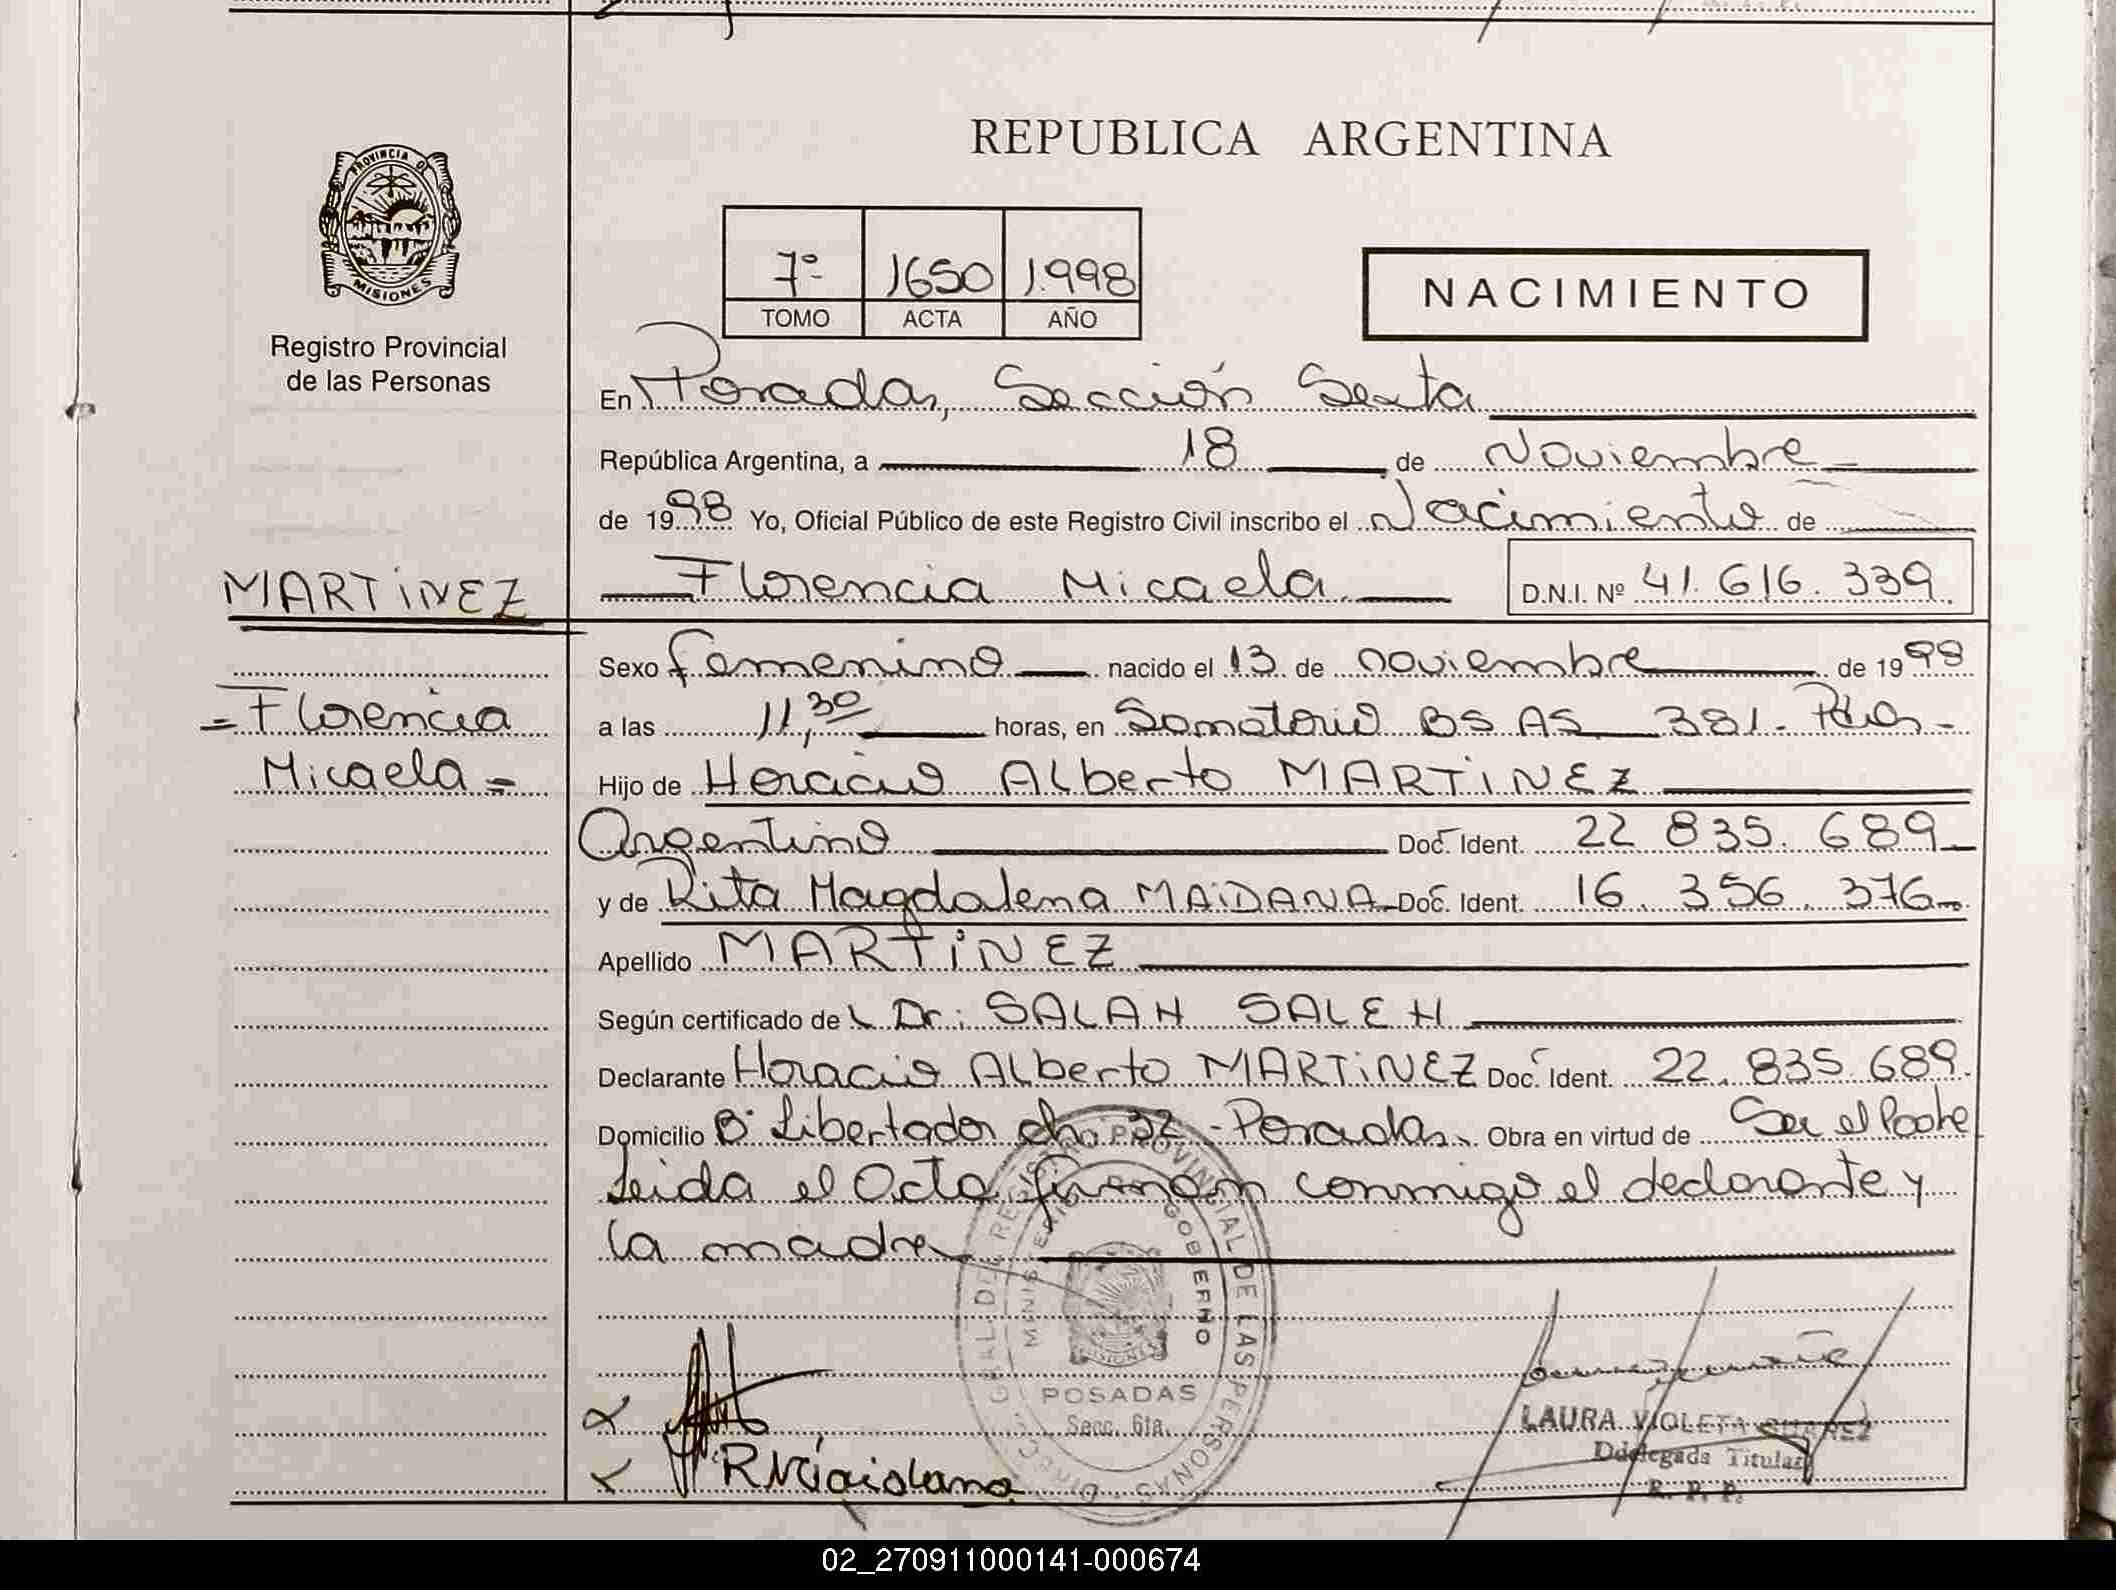 REPUBLICA ARGENTINA
PROVINCIA DE
MISIONES
Registro Provincial
de las Personas
7º 1650 1.998
TOMO ACTA AÑO
NACIMIENTO
En Posadas, Sección Sexta
República Argentina, a 18 de Noviembre
de 1998 Yo, Oficial Público de este Registro Civil inscribo el Nacimiento de
MARTINEZ
Florencia Micaela. D.N.I. Nº 41.616.339.
Sexo femenino nacido el 13 de noviembre de 1998
= Florencia
Micaela =
a las 11,30 horas, en Sanatorio BS AS 381. Pdas -
Hijo de Horacio Alberto MARTINEZ
Argentino Doc. Ident. 22 835. 689
y de Rita Magdalena MAIDANA Doc. Ident. 16. 356. 376
Apellido MARTINEZ
Según certificado de L Dr: SALAH SALEH
Declarante Horacio Alberto MARTINEZ Doc. Ident. 22. 835. 689.
Domicilio Bº Libertador ch. 32 - Posadas. Obra en virtud de Ser el Padre
Leida el Acta firman conmigo el declarante y
la madre
DIRECC. GRAL. DEL REGISTRO PROVINCIAL DE LAS PERSONAS
MINISTERIO GOBIERNO
MISIONES
POSADAS
Secc. 6ta.
RMaidana
LAURA VIOLETA SUAREZ
Ddelegada Titular
R. P. P.
02_270911000141-000674